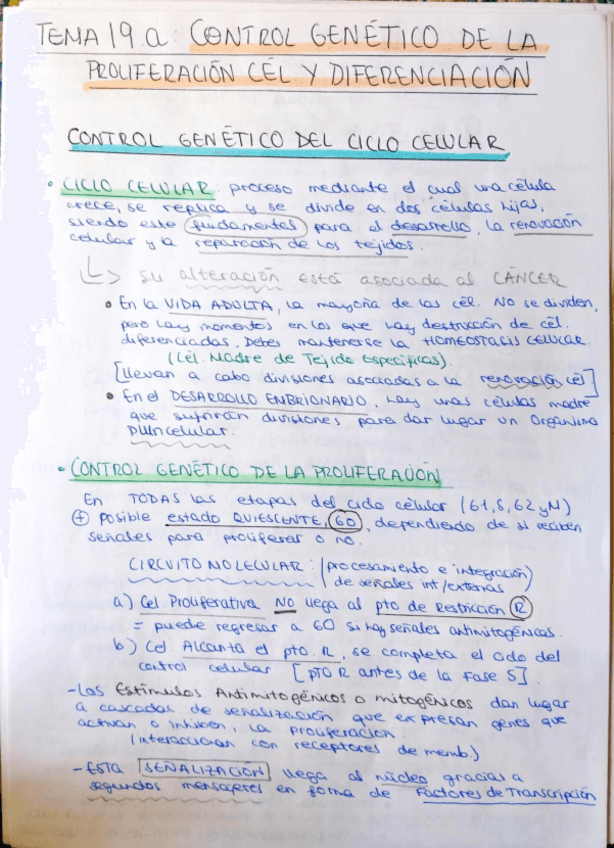 TEMA 19.a: CONTROL GENÉTICO DE LA
PROLIFERACIÓN CÉL Y DIFERENCIACIÓN
CONTROL GENÉTICO DEL CICLO CELULAR
• CICLO CELULAR: proceso mediante el cual una célula
crece, se replica y se divide en dos células hijas,
siendo este fundamental para el desarrollo, la renovación
celular y la reparación de los tejidos.
↳ su alteración está asociada al CÁNCER
• En la VIDA ADULTA, la mayoría de las cél. NO se dividen,
pero hay momentos en los que hay destrucción de cél.
diferenciadas. Debes mantenerse la HOMEOSTASIS CELULAR.
(Cél. Madre de Tejido específicas).
[llevan a cabo divisiones asociadas a la renovación cél]
• En el DESARROLLO EMBRIONARIO, hay unas células madre
que sufrirán divisiones para dar lugar un Organismo
pluricelular.
• CONTROL GENÉTICO DE LA PROLIFERACIÓN
En TODAS las etapas del ciclo célular (G1, S, G2 y M)
⊕ posible estado QUIESCENTE, G0, dependiendo de si reciben
señales para proliferar o no.
CIRCUITO MOLECULAR: (procesamiento e integración)
de señales int/externas
a) Cel. Proliferativa NO llega al pto de Restricción R
= puede regresar a G0 si hay señales antimitogénicas.
b) Cel. Alcanza el pto. R, se completa el ciclo del
control celular [pto R antes de la Fase S]
- Los Estímulos Antimitogénicos o mitogénicos dan lugar
a cascadas de señalización que expresan genes que
activan o inhiben, la proliferación.
(interaccionan con receptores de memb.)
- ESTA SEÑALIZACIÓN llega al núcleo gracias a
segundos mensajeros en forma de Factores de Transcripción